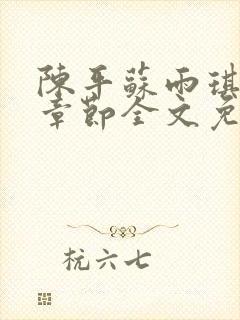 陳平蘇雨琪
章節全文免
杭六七